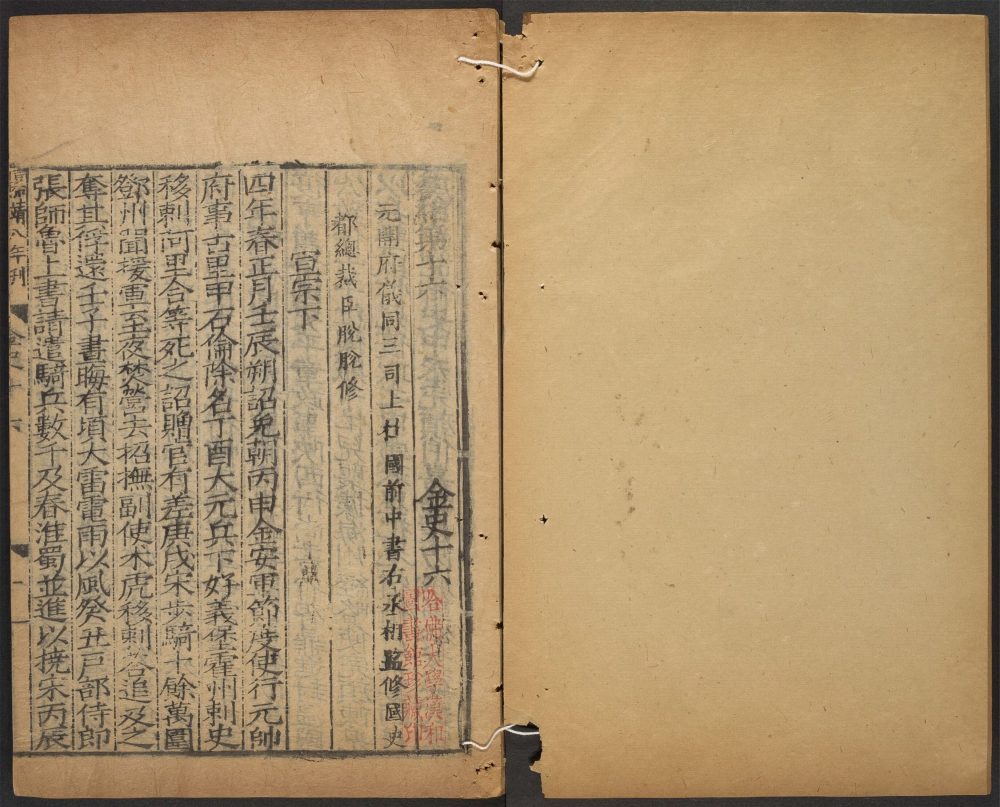 金史十六
元開府儀同三司上柱國前中書右丞相監修國史
都總裁臣脫脫修
宣宗下
四年春正月壬辰朔詔免朝丙申金安軍節度使行元帥
府事古里甲石倫除名丁酉大元兵下好義堡霍州刺史
移剌阿里合等死之詔贈官有差庚戌宋步騎十餘萬圍
鄧州聞援軍至夜焚營去招撫副使术虎移剌答追及之
奪其俘還壬子晝晦有頃大雷電雨以風癸丑戶部侍郎
張師魯上書請遣騎兵數千及春淮蜀並進以撓宋丙辰
靖八年刊
金史十六
哈佛大學漢和
圖書館珍藏印